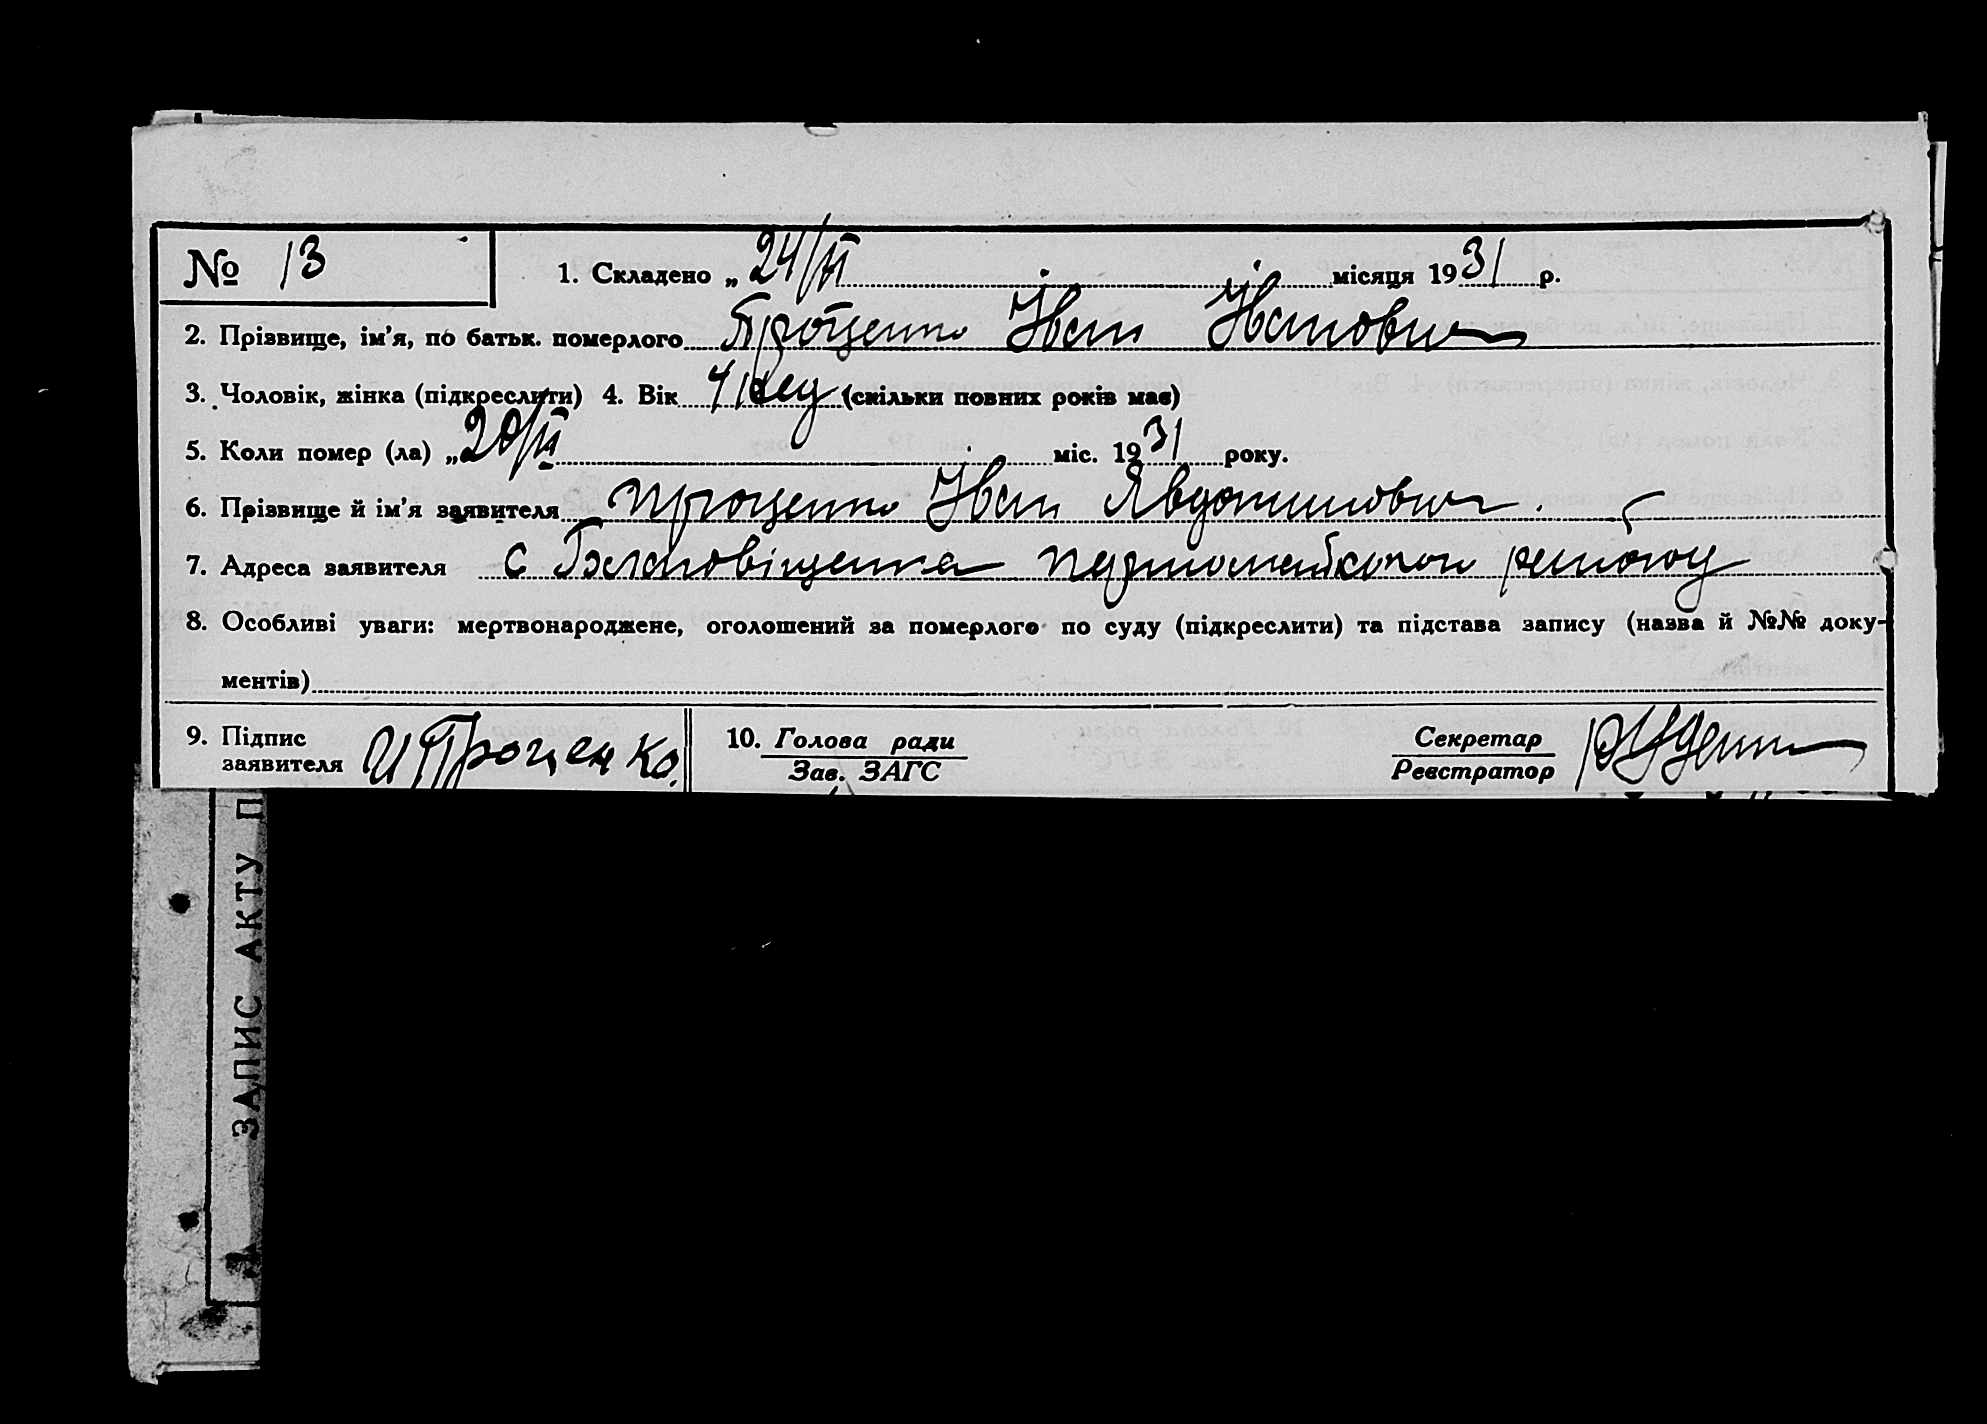 № 13 1. Складено „ 24/VI місяця 1931 р.
2. Прізвище, ім'я, по батьк. померлого Проценко Іван Іванович
3. Чоловік, жінка (підкреслити) 4. Вік (скільки повних років має)
5. Коли помер (ла) „ 20/VI міс. 1931 року.
6. Прізвище й ім'я заявителя Проценко Іван Явдокимович
7. Адреса заявителя с
8. Особливі уваги: мертвонароджене, оголошений за померлого по суду (підкреслити) та підстава запису (назва й №№ доку-
ментів)
9. Підпис
заявителя И Проценко. 10. Голова ради
Зав. ЗАГС Секретар
Реєстратор
ЗАПИС АКТУ П